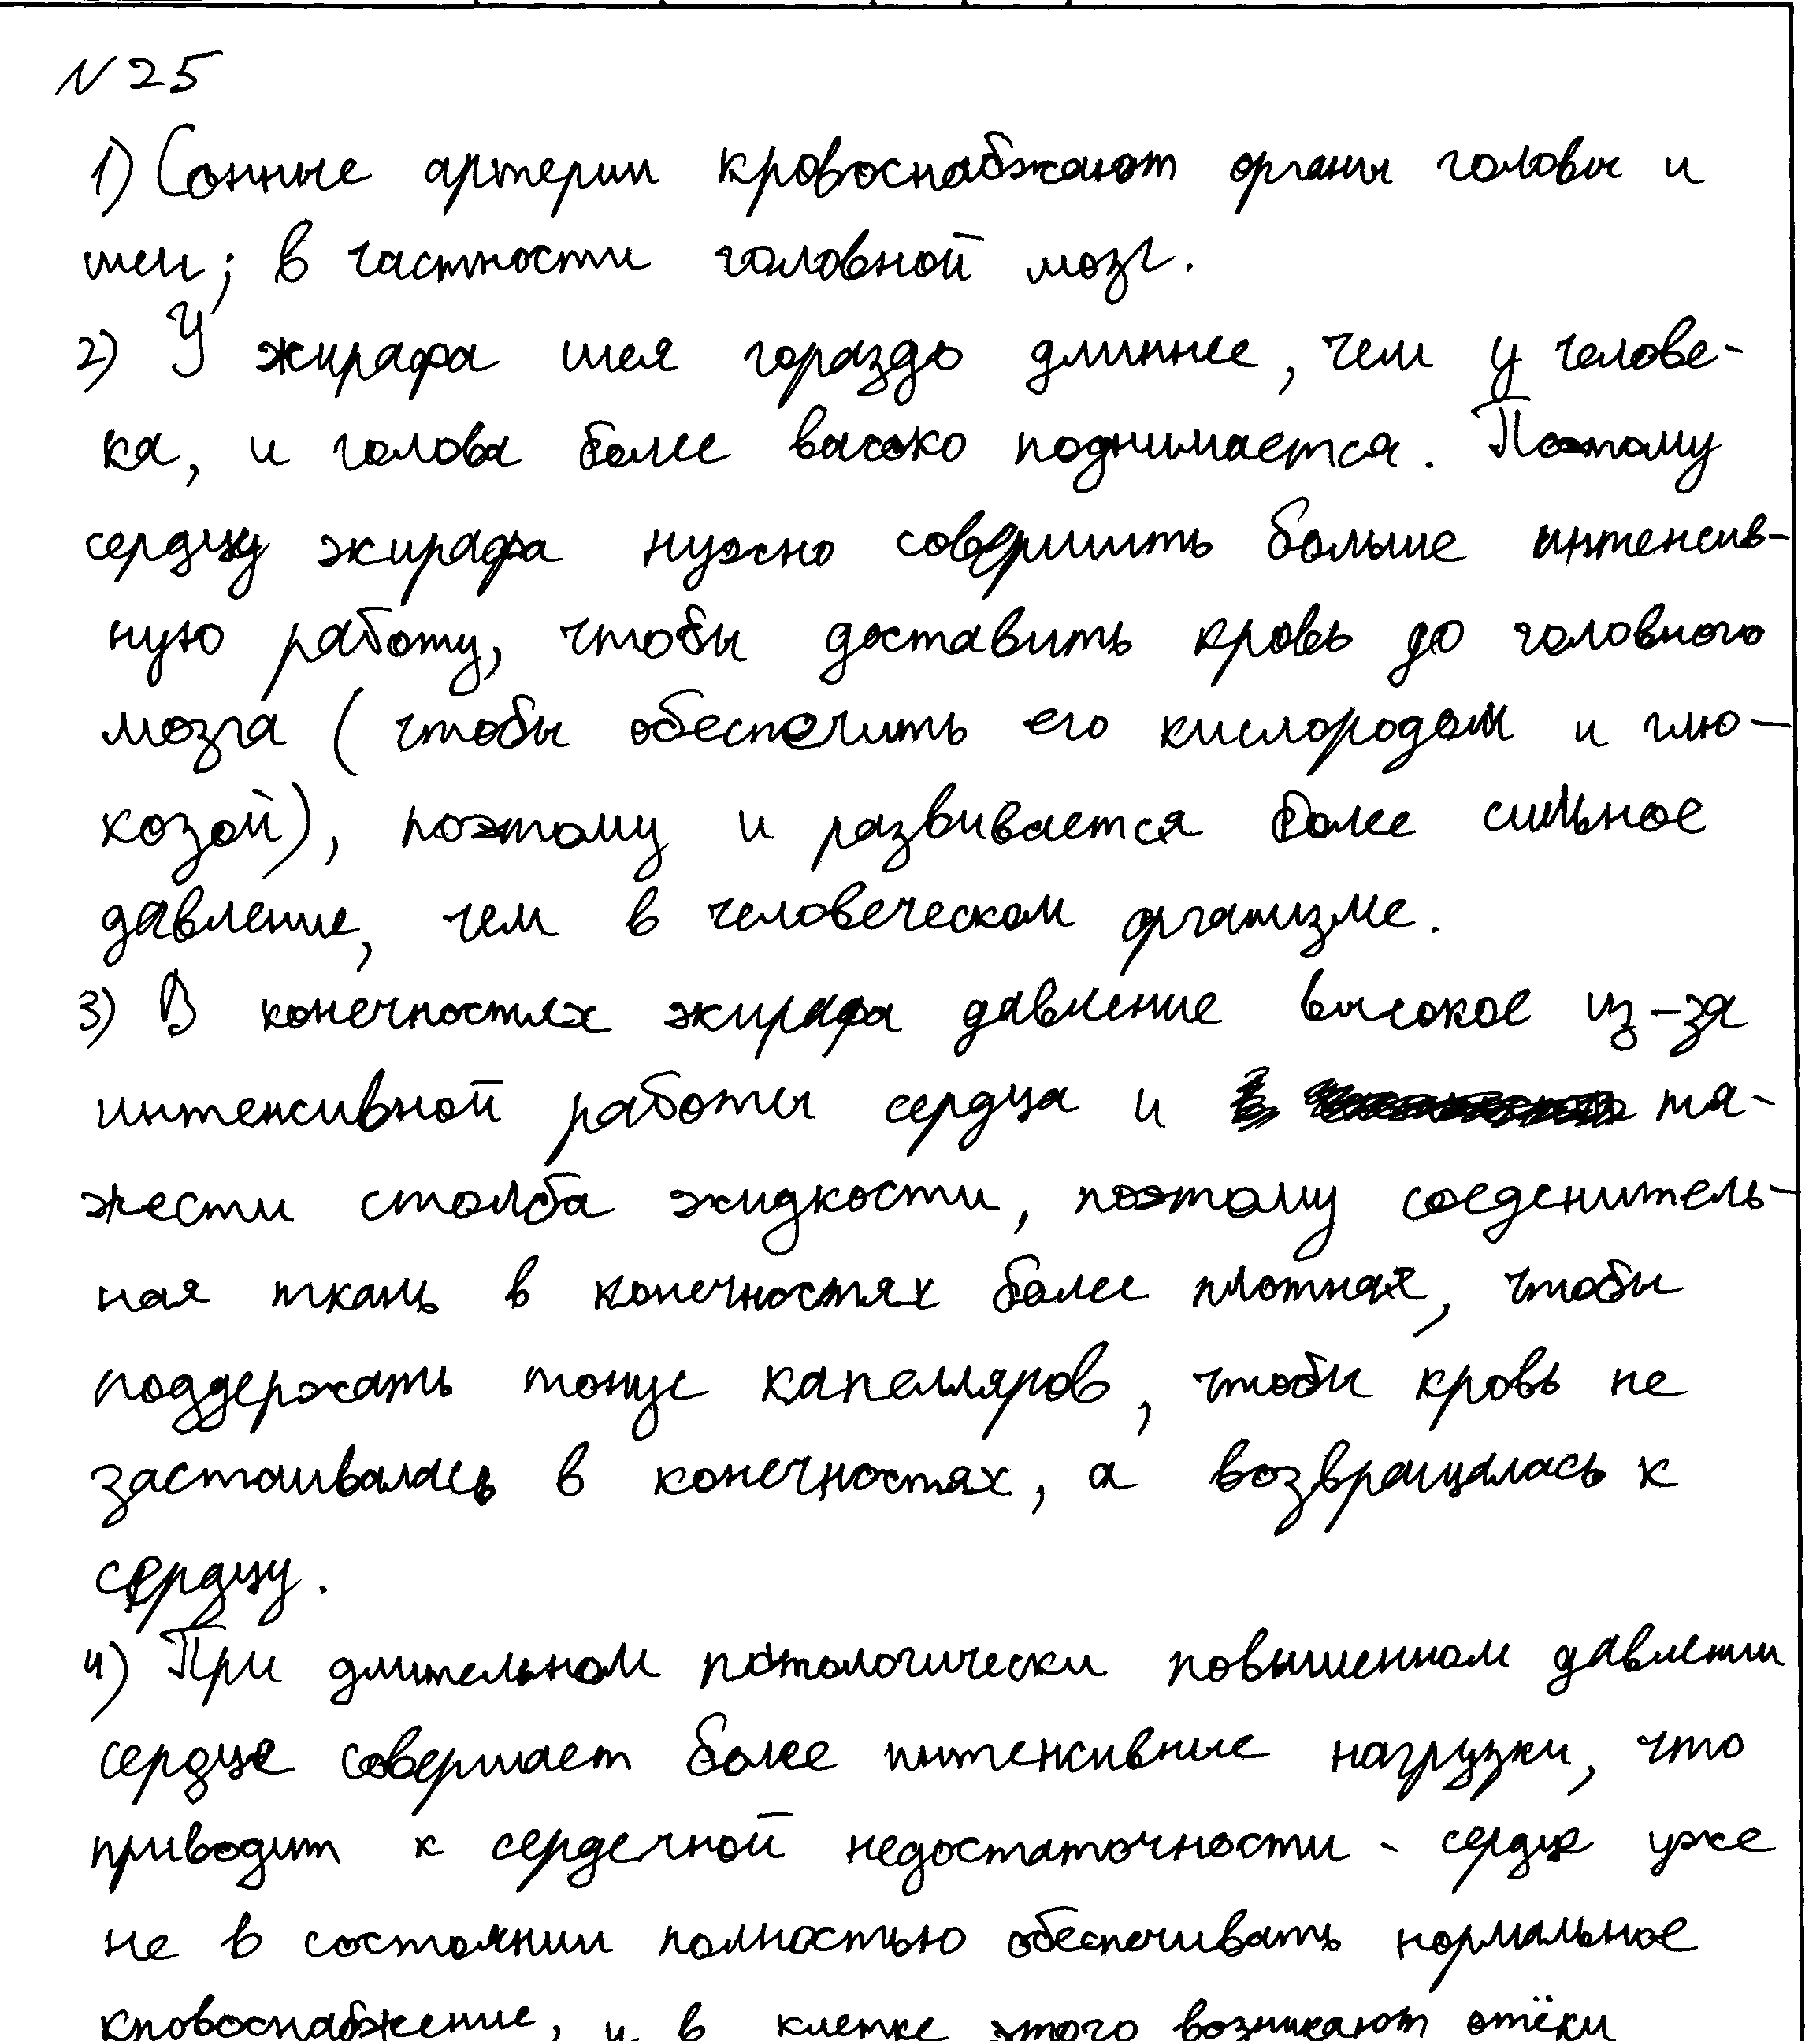 N 25
1) Сонные артерии кровоснабжают органы головы и
шеи; в частности головной мозг.
2) У жирафа шея гораздо длиннее, чем у челове-
ка, и голова более высоко поднимается. Поэтому
сердцу жирафа нужно совершить больше интенсив-
ную работу, чтобы доставить кровь до головного
мозга (чтобы обеспечить его кислородом и глю-
козой), поэтому и развивается более сильное
давление, чем в человеческом организме.
3) В конечностях жирафа давление высокое из-за
интенсивной работы сердца и тя-
жести столба жидкости, поэтому соеденитель-
ная ткань в конечностях более плотная, чтобы
поддержать тонус капелляров, чтобы кровь не
застаивалась в конечностях, а возвращалась к
сердцу.
4) При длительном патологически повышенном давлении
сердце совершает более интенсивные нагрузки, что
приводит к сердечной недостаточности - сердце уже
не в состоянии полностью обеспечивать нормальное
кровоснабжение, и в клетке этого возникают отёки